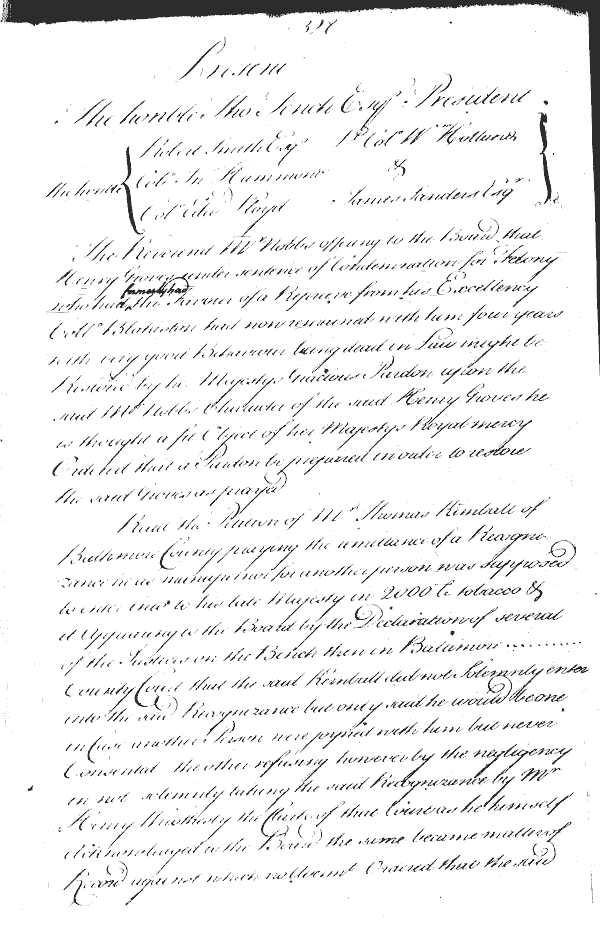 Present
The honble Tho Tench Esqr. President
Robert Smith Esqr Lt Coll Wm Holland
the honble Coll Jno Hammond &
Coll Edwd Lloyd James Sanders Esqr
The Reverend Mr Nobbs to the Board that
Henry Groves under sentence of Condemnation for Felony
who had formerly had the favour of a Reprieve from his Excellency
Coll Blakiston had now remained with him four years
with very good Behaviour being dead in Law might be
Restored by her Majestys Gracious Pardon upon the
said Mr Nobbs Character of the said Henry Groves he
is thought a fit Object of her Majestys Royal mercy
Ordered that a Pardon be prepared in order to restore
the said Groves as prayed
Read the Petition of Mr Thomas Kemball of
Baltimore County praying the of a Recogni-
zance he as for another person was supposed
to enter into to his late Majesty in 2000 lb tobacco &
it Appearing to the Board by the Declaration of several
of the Justices on the Bench then in Baltimore
County Court that the said Kemball did not Solemnly enter
into the said Recognizance but only said he would be one
in Case another Person were joyned with him but never
Consented the other refusing however by the negligency
in not solemnly taking the said Recognizance by Mr
Henry the Clerk of that Court as he himself
Acknowledged to the Board the same became matter of
Record against which no Ordered that the said